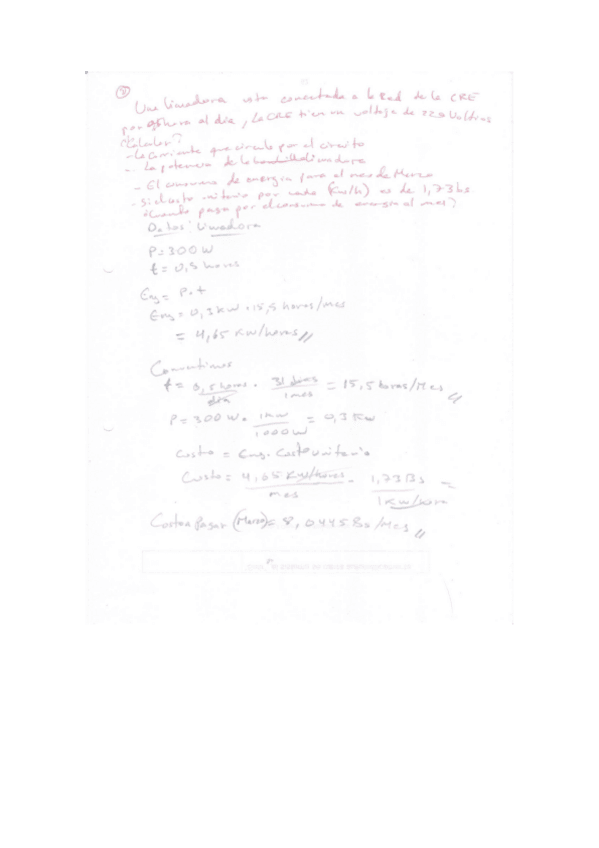 ③
Una licuadora esta conectada a la Red de la CRE
por 0,5 hora al día, La CRE tiene un voltaje de 220 Voltios
Calcular?
- La corriente que circula por el circuito
- La potencia de la licuadora
- El consumo de energía para el mes de Marzo
- Si el costo unitario por cada (Kw/h) es de 1,73 bs
¿Cuanto pago por el consumo de energía al mes?
Datos: Licuadora
P = 300 W
t = 0,5 horas
Eng = P.t
Eng = 0,3 KW . 15,5 horas/mes
= 4,65 KW/horas //
Conversiones
t = 0,5 horas/dia . 31 dias/1 mes = 15,5 horas/Mes //
P = 300 W . 1 KW/1000 W = 0,3 KW
Costo = Eng. Costo unitario
Costo = 4,65 KW/horas/mes . 1,73 Bs/1 KW/hora =
Costo a Pagar (Marzo) = 8,0445 Bs/Mes //